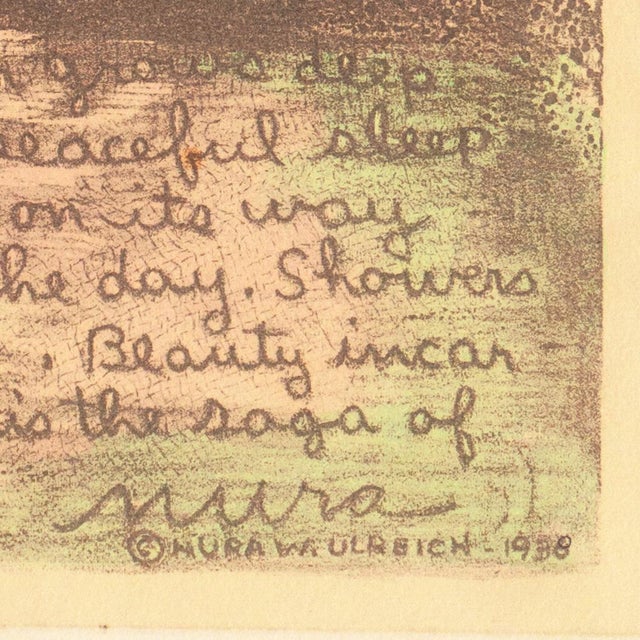 grows deep
peaceful sleep
on its way
he day. Showers
. Beauty incar-
is the saga of
nura
© NURA W. ULREICH - 1938